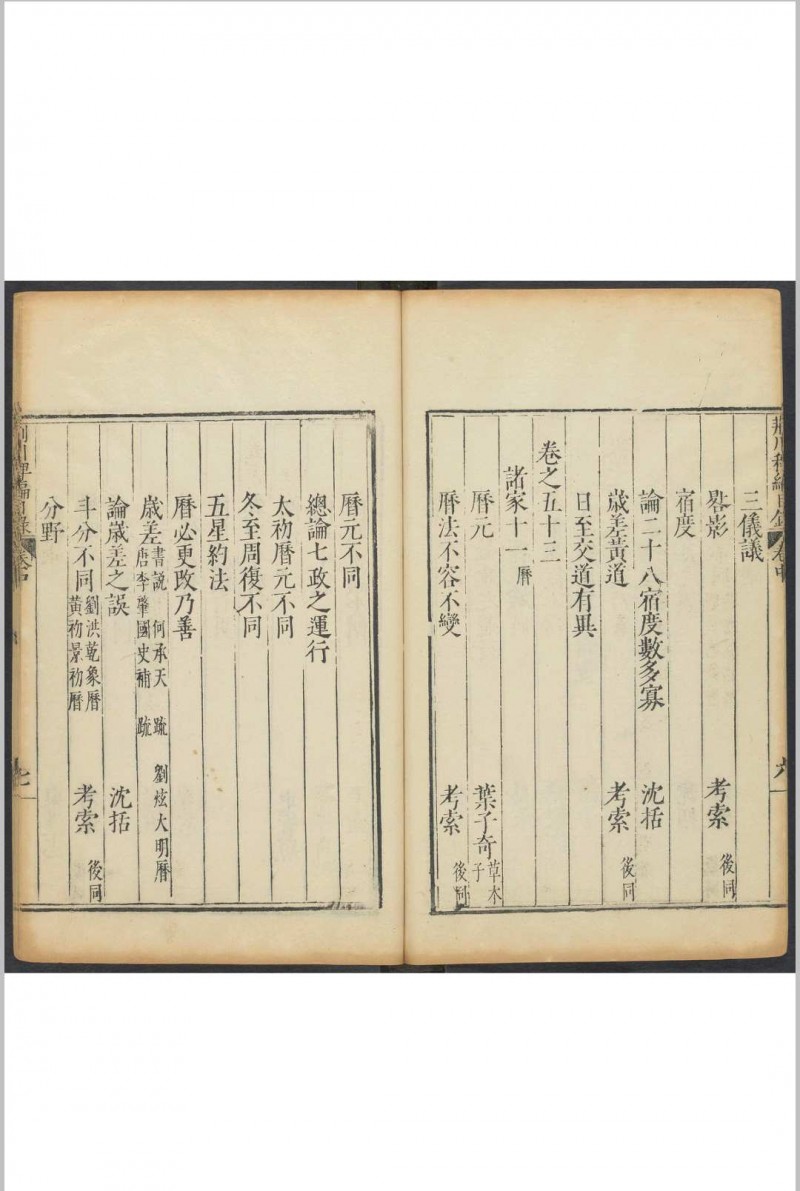 三儀議
晷影 考索 後同
宿度
論二十八宿度數多寡 沈括
歲差黃道 考索 後同
日至交道有異
卷之五十三
諸家十一 曆
曆元 葉子奇 草木子
曆法不容不變 考索 後同
曆元不同
總論七政之運行
太初曆元不同
冬至周復不同
五星約法
曆必更改乃善
歲差 書說 何承天 疏 劉炫大明曆 唐李肇國史補 疏
論歲差之誤 沈括
斗分不同 劉洪乾象曆 黃初景初曆 考索 後同
分野